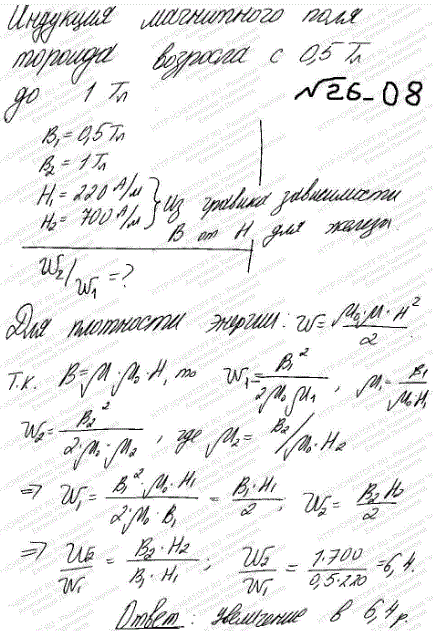 Индукция магнитного поля
тороида возросла с 0,5 Тл
до 1 Тл
№26-08
B₁ = 0,5 Тл
B₂ = 1 Тл
H₁ = 220 А/м
H₂ = 700 А/м } Из графика зависимости
B от H для железа.
W₂/W₁ = ?
Для плотности энергии: W = μ₀·μ·H²/2
т.к. B = μ·μ₀·H, то W₁ = B₁²/2μ₀μ₁, μ₁ = B₁/μ₀·H₁
W₂ = B₂²/2·μ₀·μ₂, где μ₂ = B₂/μ₀·H₂
=> W₁ = B₁²·μ₀·H₁/2·μ₀·B₁ = B₁·H₁/2; W₂ = B₂H₂/2
=> W₂/W₁ = B₂·H₂/B₁·H₁; W₂/W₁ = 1·700/0,5·220 = 6,4.
Ответ: увеличение в 6,4 р.